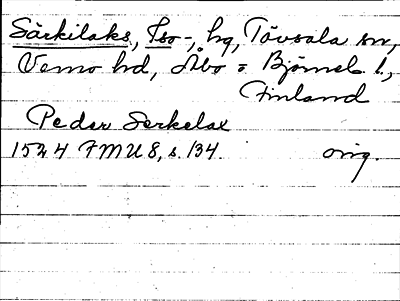 Särkilaks, Iso-, hg, Tövsala sn,
Vemo hd, Åbo o Björneb. l.,
Finland
Peder Serkelax
1524 FMU 8, s. 134. orig.